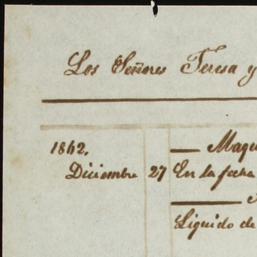 Los Señores Teresa y
1862.
— Maqu
Diciembre 27 En la fecha
Liquido de